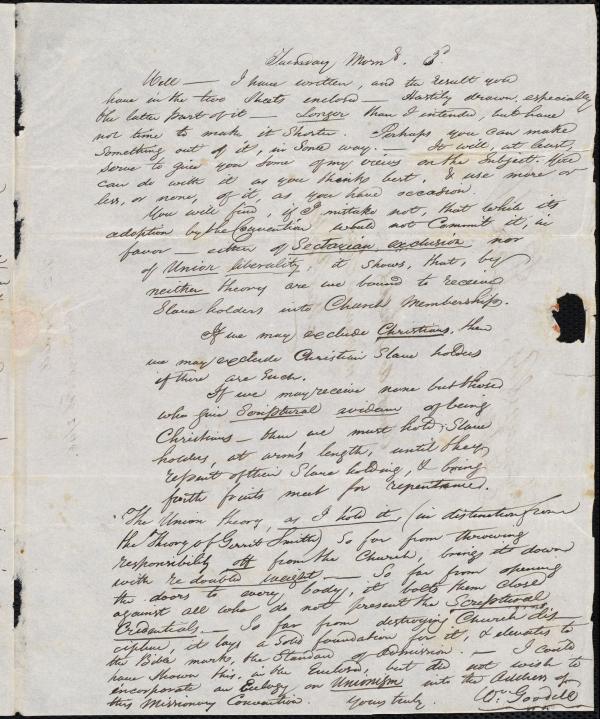 Tuesday Morng. 3d.
Well — I have written, and the result you
have in the two Sheets enclosed — Hastily drawn, especially
the later part of it — Longer than I intended, but have
not time to make it Shorter. Perhaps you can make
Something out of it, in Some way. — It will, at least,
serve to give you Some of my views on the Subject. You
can do with it as you think best, & use more or
less, or none, of it, as you have occasion.
You will find, if I mistake not, that while its
adoption by the Convention would not Commit it, in
favor — either of Sectarian exclusion nor
of Union liberality, it shows, that, by
neither theory are we bound to receive
Slave holders into Church Membership.
If we may exclude Christians, then
we may exclude Christian Slave holders
if there are Such.
If we may receive none but those
who give Scriptural evidence of being
Christians — then we must hold Slave
holders, at arm's length, until they
repent of their Slave holding, & bring
forth fruits meet for repentance.
The Union theory, as I hold it, (in distinction from
the Theory of Gerrit Smith) So far from throwing
responsibility off from the Church, brings it down
with redoubled weight — So far from opening
the doors to every body, it bolts them close
against all who do not present the Scriptural
Credentials. — So far from destroying Church dis-
cipline, it lays a Solid foundation for it, & elevates to
the Bible marks, the Standard of admission. — I could
have shown this, in the Enclosed, but did not wish to
incorporate an Eulogy on Unionism into the Address of
this Missionary Convention. Yours truly, Wm. Goodell